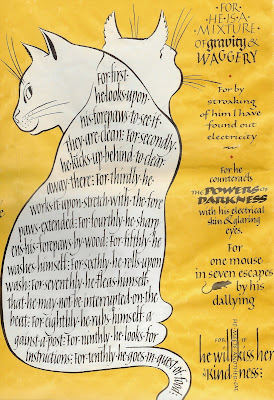 For first
he looks upon
his forepaw to see if
they are clean: For secondly
he kicks up behind to clear
away there: For thirdly he
works it upon stretch with the fore
paws extended: For fourthly he sharp
ens his forepaws by wood: For fifthly he
washes himself: For sixthly he rolls upon
wash: For seventhly he fleas himself,
that he may not be interrupted on the
beat: For eighthly he rubs himself a
gainst a post: For ninthly he looks for
instructions: For tenthly he goes in quest of food:
·FOR·
·HE·IS·A·
MIXTURE
OF gravity &
WAGGERY
For by
stroaking
of him I have
found out
electricity
For he
counteracts
THE POWERS OF
DARKNESS
with his electrical
skin & glaring
eyes.
For
one mouse
in seven escapes
by his
dallying
FOR
he will kiss her
in kindness: